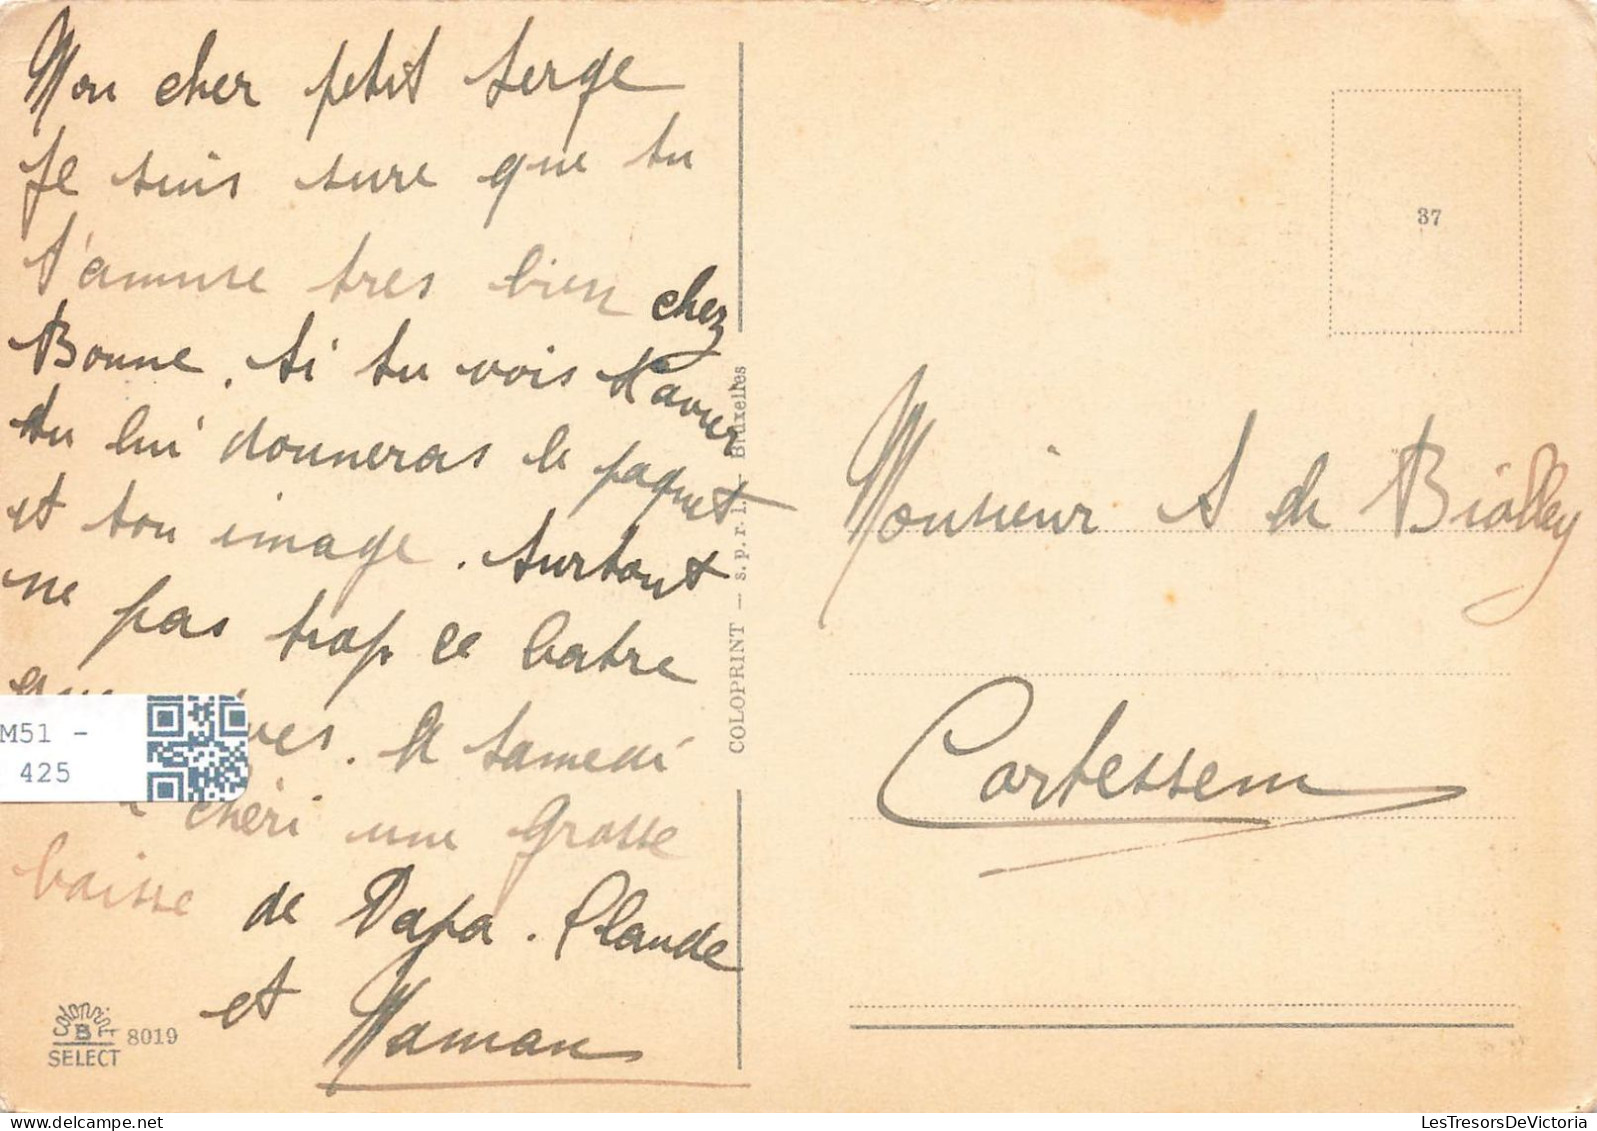 Mon cher petit Serge
Je suis sure que tu
t'amuse tres bien chez
Bonne. Si tu vois Xavier
tu lui donneras le paquet
et ton image. Surtout
ne pas trop ce batre
M51 -
425
. A samedi
chéri une grosse
baisse
de Papa. Claude
et Maman
Colorprint
B
SELECT
8019
COLOPRINT — s. p. r. l. - Bruxelles
37
Monsieur S de Biolley
Cortessem
LesTresorsDeVictoria.com